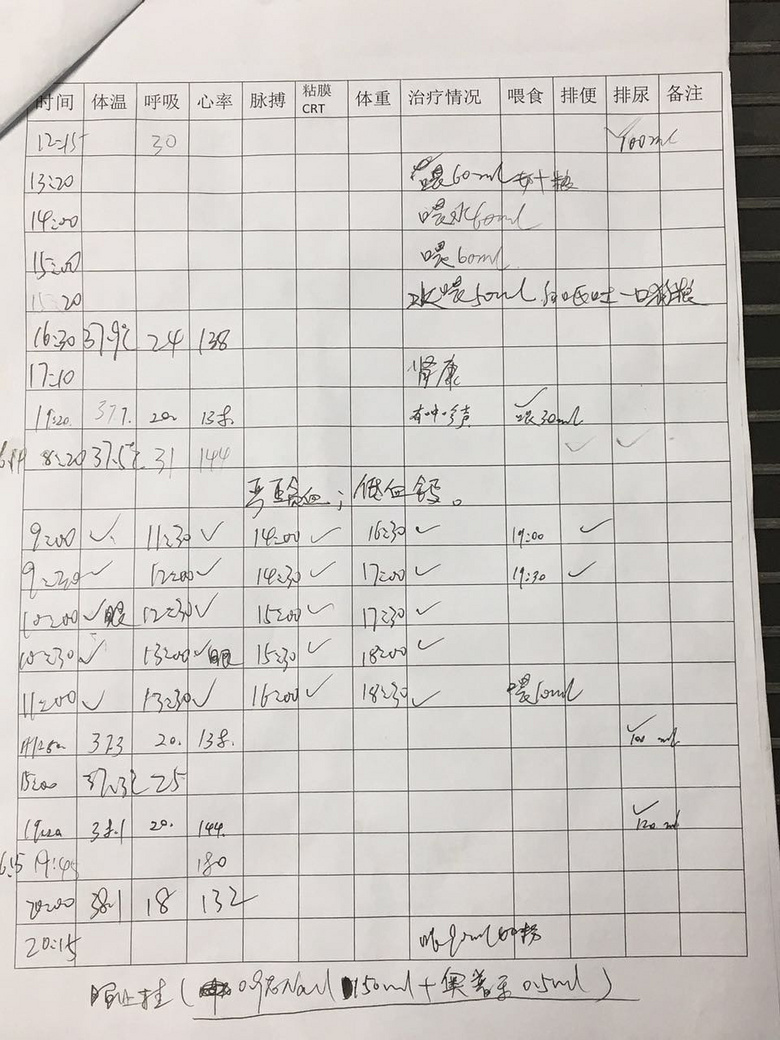 时间 体温 呼吸 心率 脉搏 粘膜CRT 体重 治疗情况 喂食 排便 排尿 备注
12:15 30 ✓100ml
13:20 喂60ml
14:00 喂水60ml
15:00 喂60ml
15:20 水喂50ml 呕吐一口
16:30 37.9℃ 24 138
17:10 肾康
19:20 37.7 20. 有呻吟声 ✓喂30ml
8:20 37.5℃ 31 144 ✓ ✓
输血; 低血钙。
9:00 ✓ 11:30 ✓ 14:00 ✓ 16:30 ✓ 19:00 ✓
9:30 ✓ 12:00 ✓ 14:30 ✓ 17:00 ✓ 19:30 ✓
10:00 ✓眼 12:30 ✓ 15:00 ✓ 17:30 ✓
10:30 ✓ 13:00 ✓眼 15:30 ✓ 18:00 ✓
11:00 ✓ 13:30 ✓ 16:00 ✓ 18:30 ✓ 喂50ml
37.3 20. ✓100 ml
15:00 37.3℃ 25
38.1 20. 144. ✓120 ml
19:45 180
20:00 38.1 18 132
20:15
0.9%NaCl 150ml + 0.5ml )